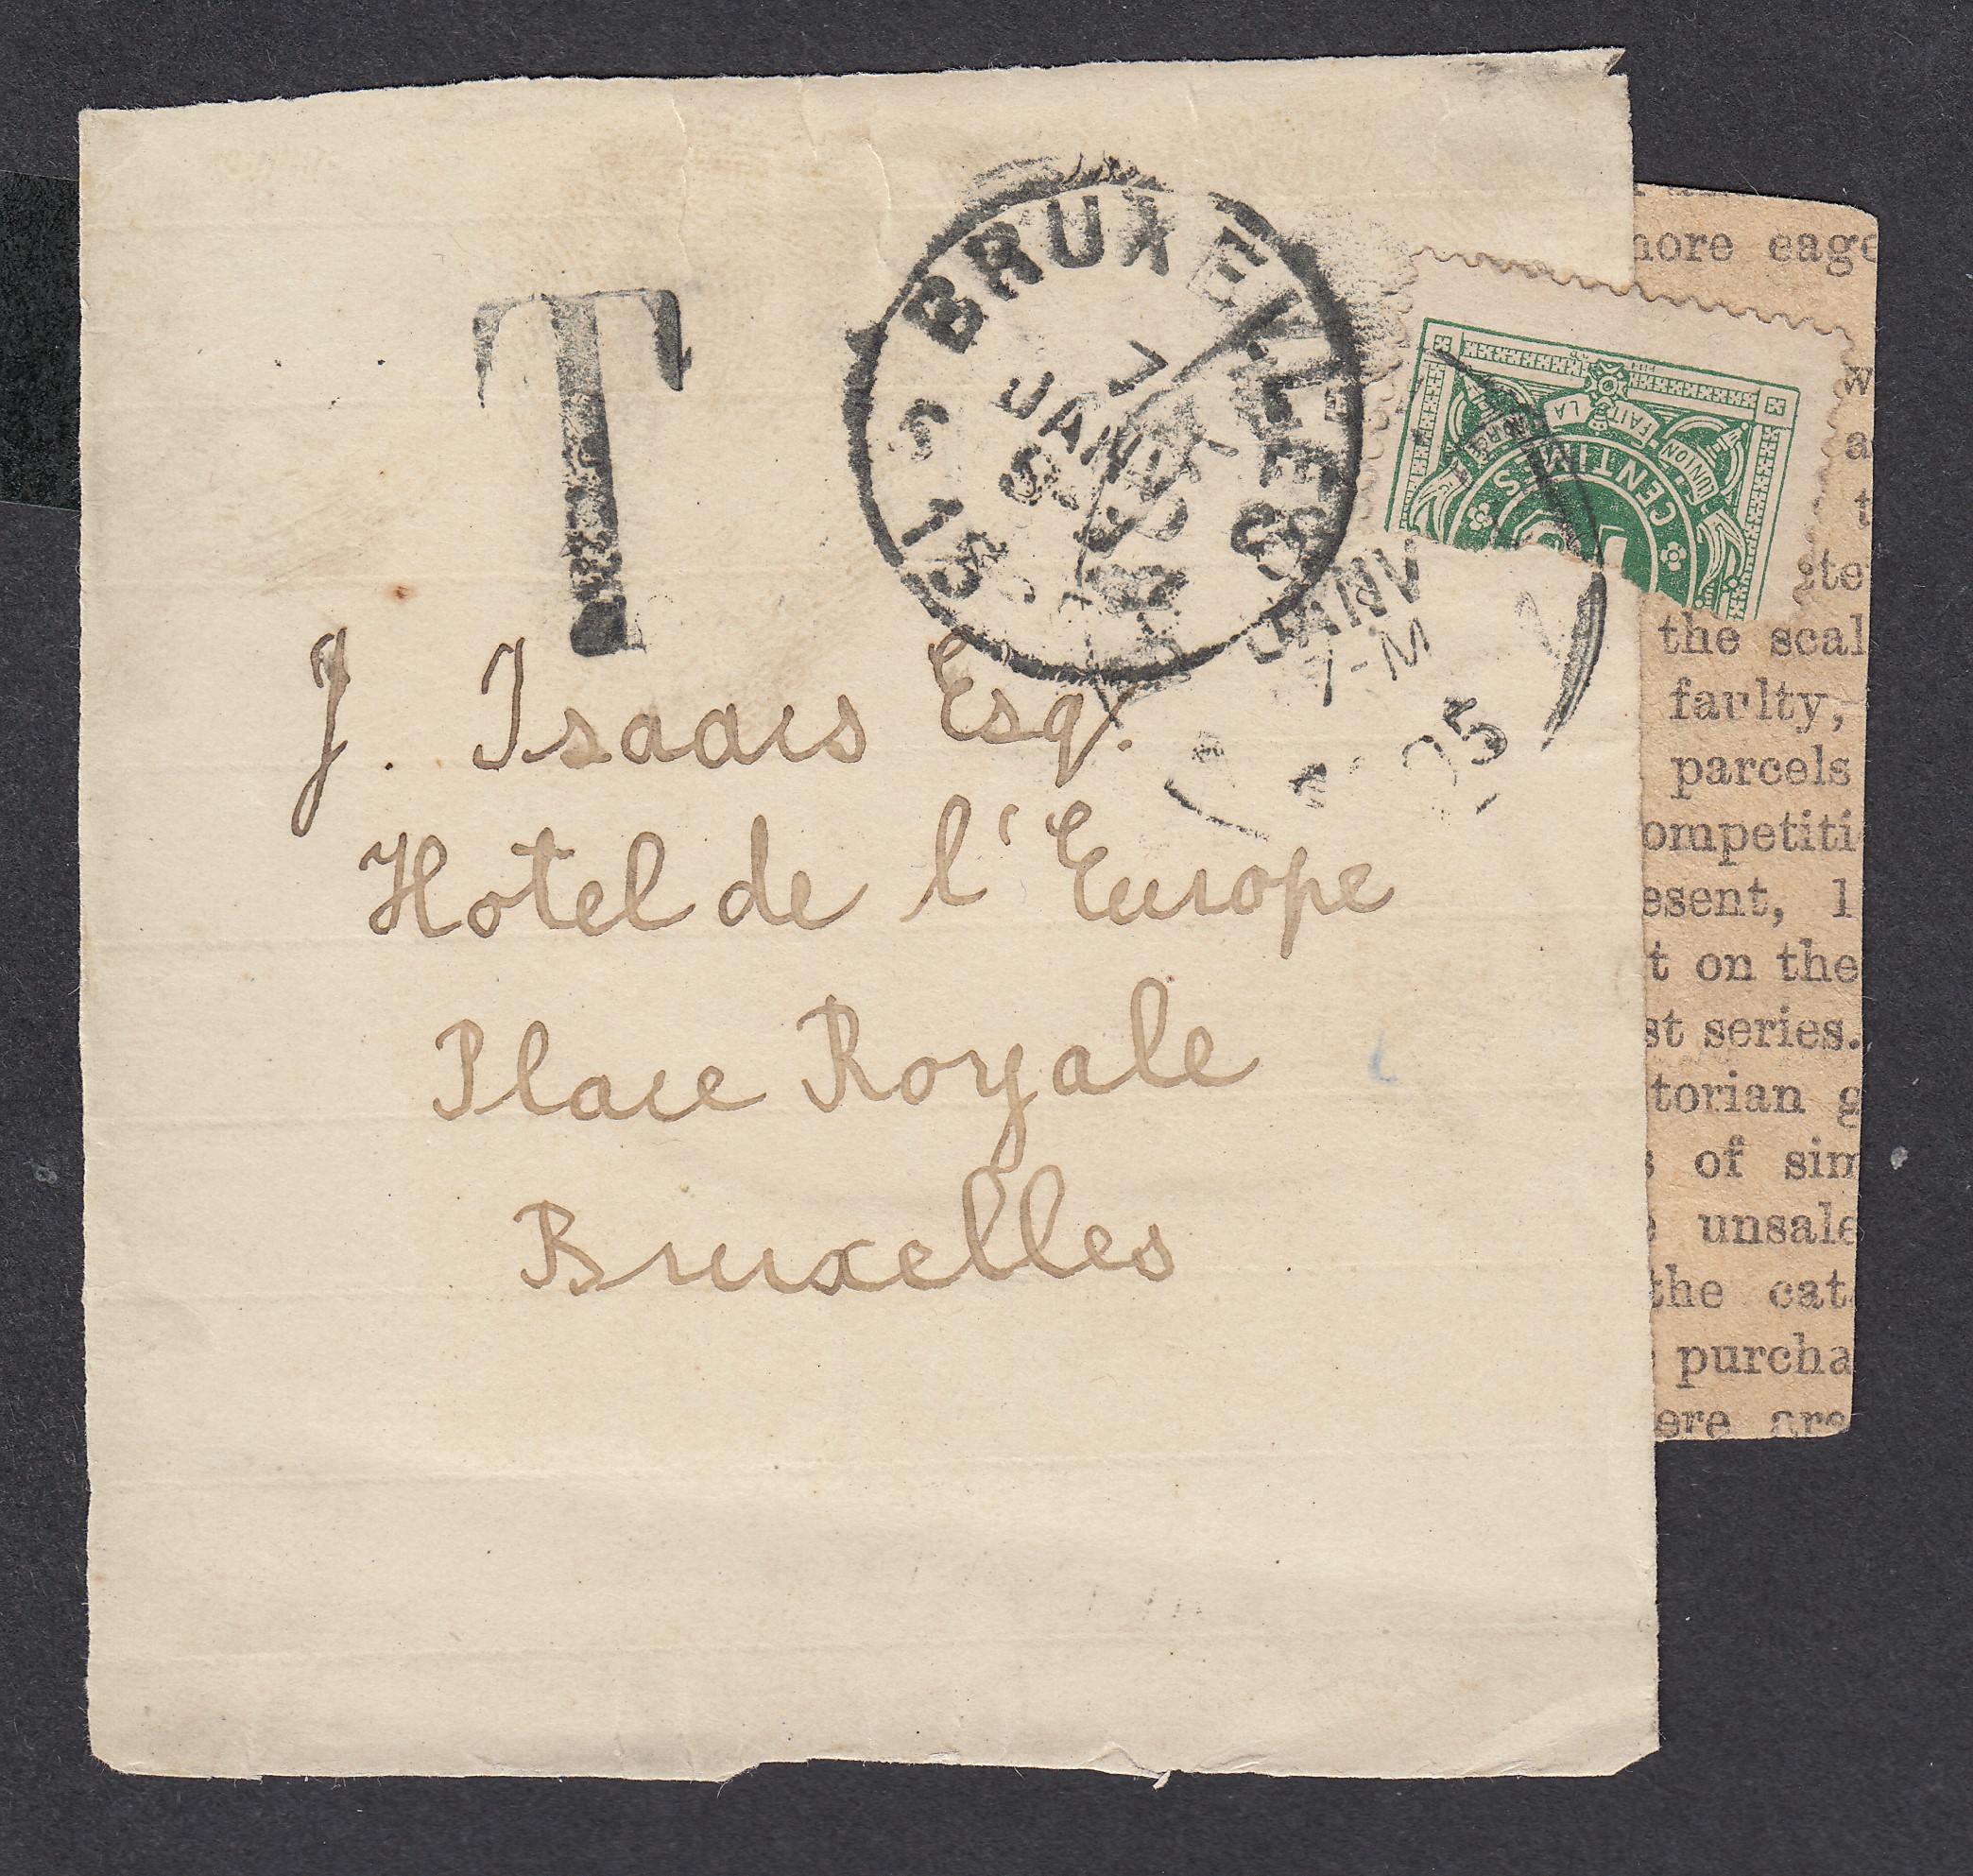 T
BRUXELLES
7
JANV
JANV
7-M
95
LA
FAIT
L'UNION
CENTIMES
J. Isaacs Esqr.
Hotel de l'Europe
Place Royale
Bruxelles
more eage
w
a
t
ite
the scal
faulty,
parcels
ompetiti
esent, l
t on the
st series.
torian g
s of sim
e unsale
the cat
purcha
ere are